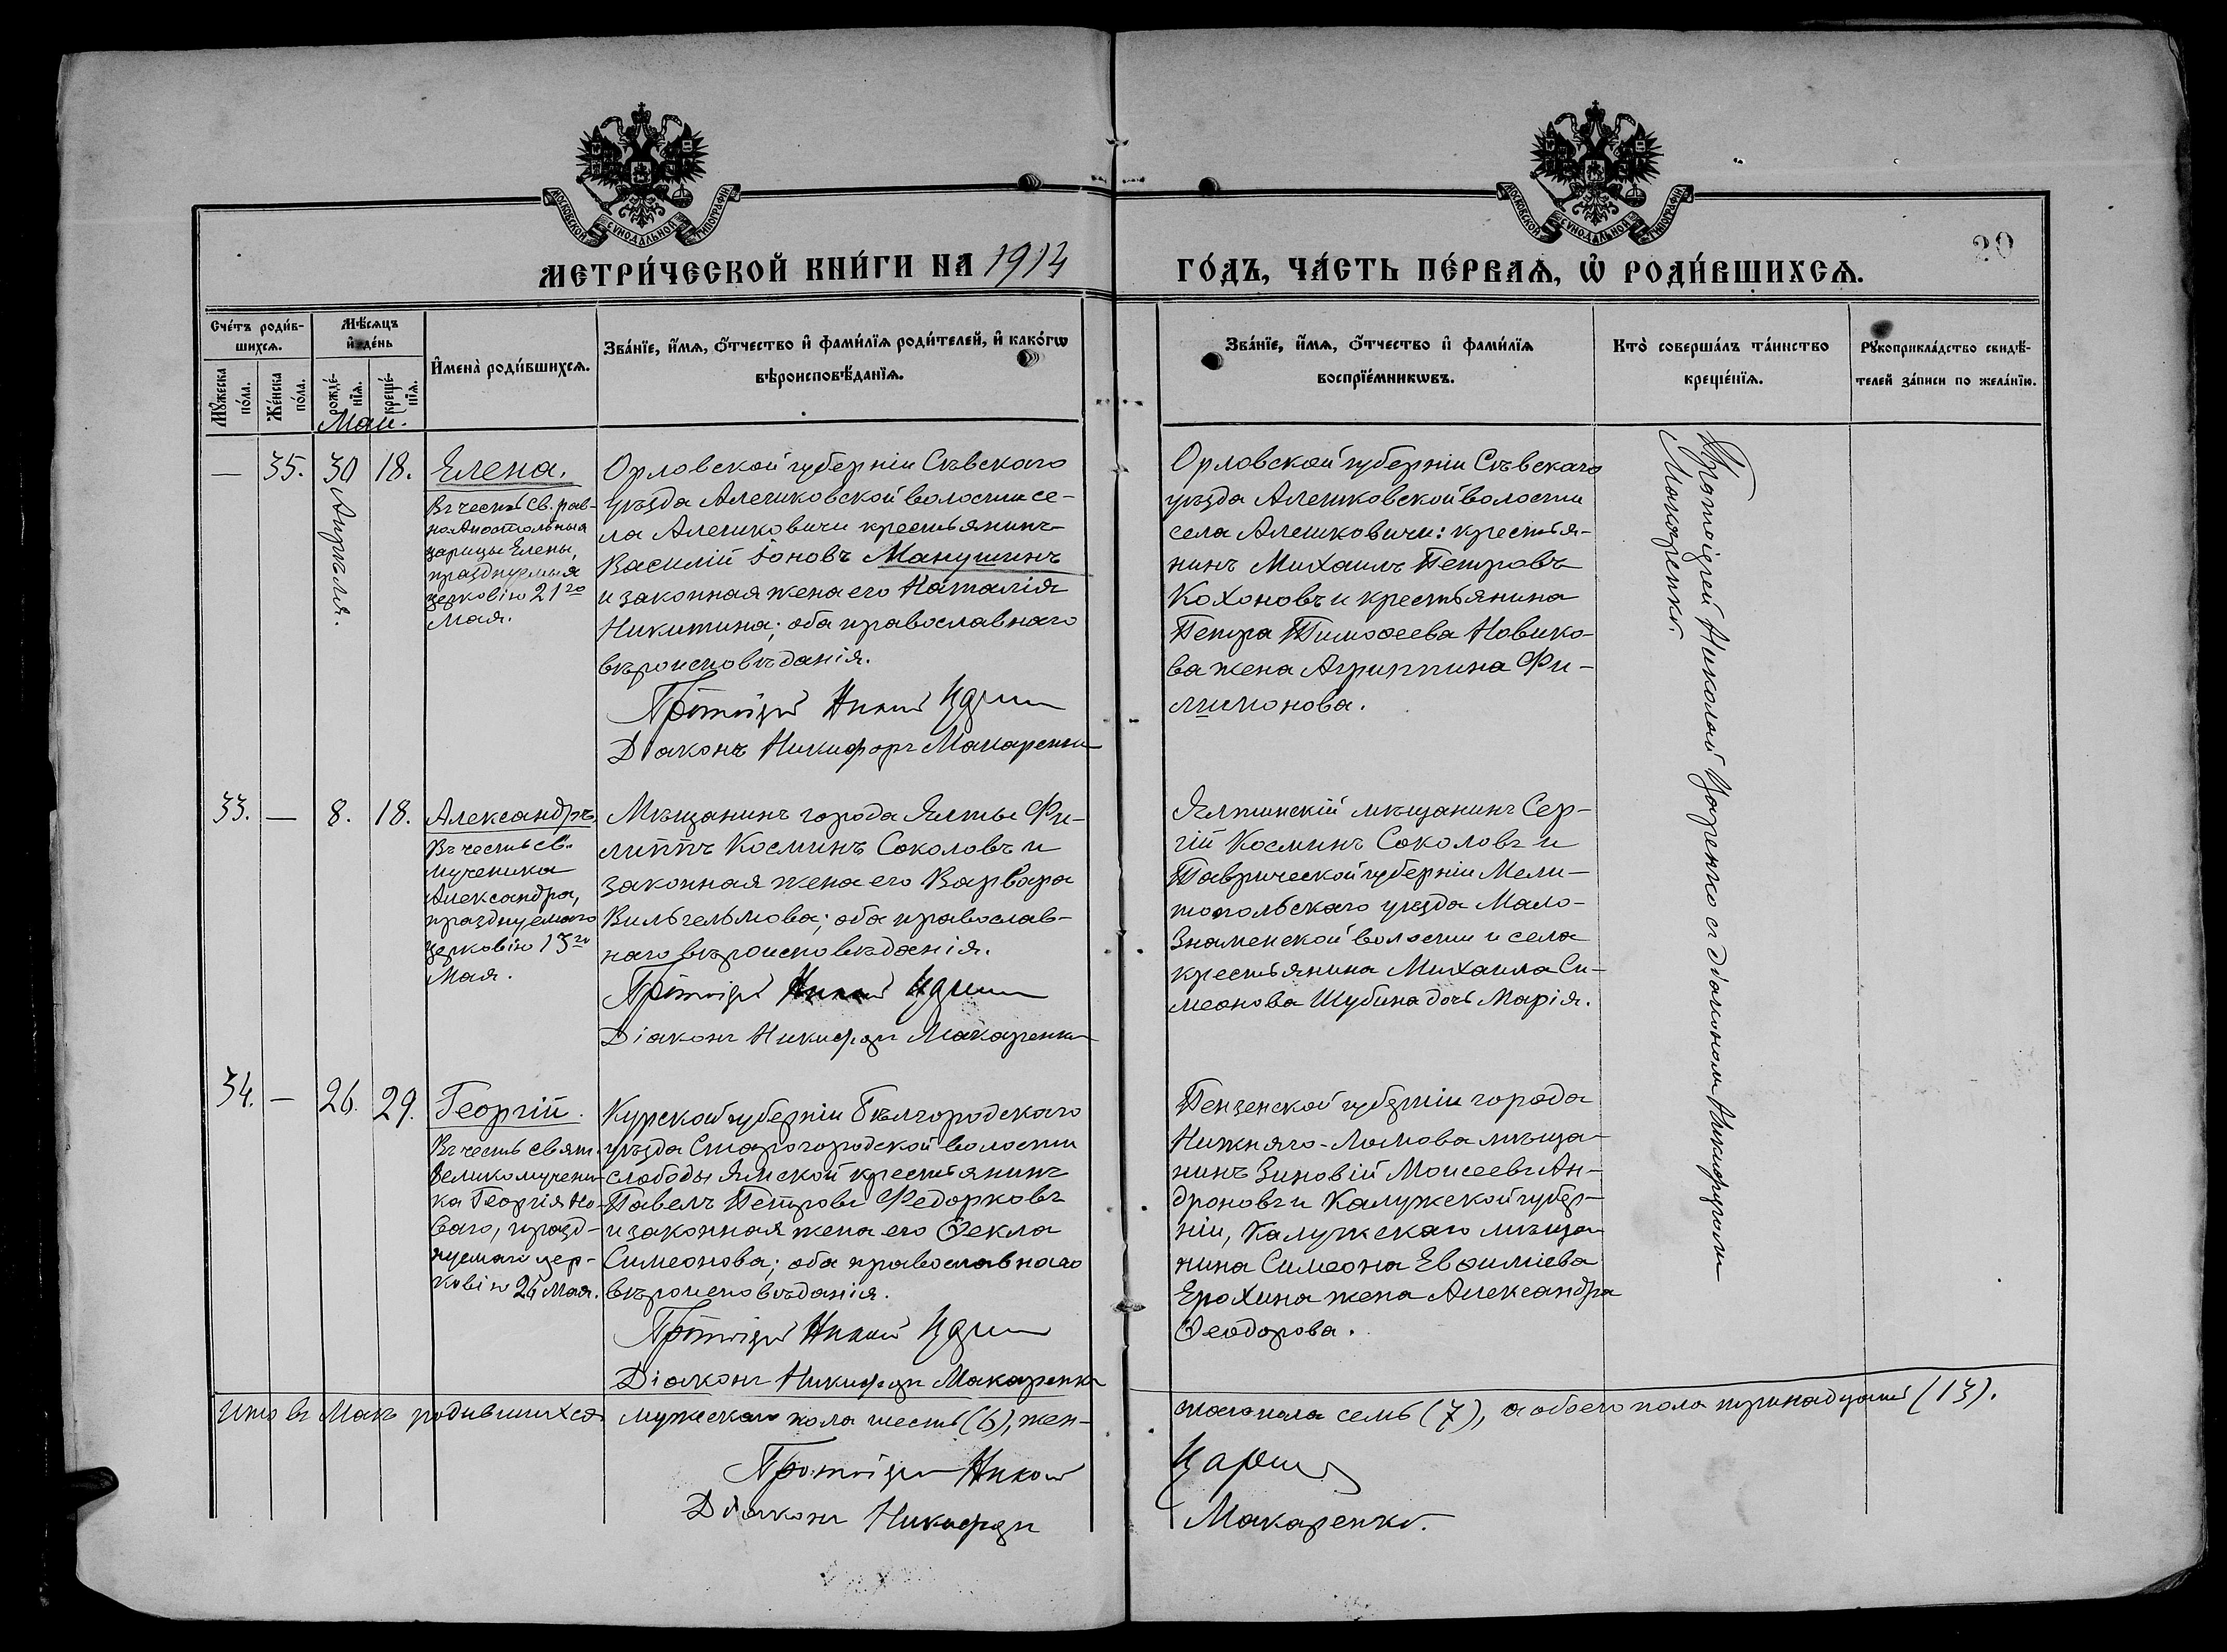 МОСКОВСКОЙ СѴНОДАЛЬНОЙ ТИПОГРАФІИ
МОСКОВСКОЙ СѴНОДАЛЬНОЙ ТИПОГРАФІИ
20
МЕТРИ́ЧЕСКОЙ КНИ́ГИ НА 1914 ГО́ДЪ, ЧА́СТЬ ПЕ́РВАѦ, Ѡ РОДИ́ВШИХСѦ.
Сче́тъ роди́в-
шихсѧ.
Мѣ́сѧцъ
и҆ де́нь
И҆мена̀ роди́вшихсѧ.
Зва́нїе, и҆́мѧ, ѻ҆́тчество и҆ фами́лїѧ роди́телей, и҆ како́гѡ
вѣроисповѣ́данїѧ.
Зва́нїе, и҆́мѧ, ѻ҆́тчество и҆ фами́лїѧ
воспрїе́мникѡвъ.
Кто̀ соверша́лъ та́инство
креще́нїѧ.
Рꙋкоприкла́дство свидѣ́-
телей за́писи по жела́нїю.
Мꙋ́жеска
по́ла.
Же́нска
по́ла.
рожде́-
нїѧ.
креще́-
нїѧ.
Май.
— 35. 30 18. Елена.
Апрѣля.
Въ честь Св. рав-
но-Апостольныя
царицы Елены,
празднуемыя
церковію 21го
Мая.
Орловской губерніи Сѣвскаго
уѣзда Алешковской волости се-
ла Алешковичи крестьянинъ
Василій Іоновъ Манушинъ
и законная жена его Наталія
Никитина; оба православнаго
вѣроисповѣданія.
Протоіерей Николай
Діаконъ Никифоръ Макаренко
Орловской губерніи Сѣвскаго
уѣзда Алешковской волости
села Алешковичи: крестья-
нинъ Михаилъ Петровъ
Кохоновъ и крестьянина
Петра Тимоѳеева Новико-
ва жена Агриппина Фи-
лимонова.
Протоіерей Николай Царенко съ діакономъ Никифоромъ
Макаренко.
33. — 8. 18. Александръ
Въ честь св.
мученика
Александра,
празднуемаго
церковію 13го
Мая.
Мѣщанинъ города Ялты Фи-
липпъ Косминъ Соколовъ и
законная жена его Варвара
Вильгельмова; оба православ-
наго вѣроисповѣданія.
Протоіерей Николай
Діаконъ Никифоръ Макаренко
Ялтинскій мѣщанинъ Сер-
гій Косминъ Соколовъ и
Таврической губерніи Мели-
топольскаго уѣзда Мало-
Знаменской волости и села
крестьянина Михаила Си-
меонова Шубина дочь Марія.
34. — 26. 29. Георгій.
Въ честь свят.
Великомучени-
ка Георгія Но-
ваго, празд-
нуемаго цер-
ковію 26 Мая.
Курской губерніи Бѣлгородскаго
уѣзда Старогородской волости
слободы Ямской крестьянинъ
Павелъ Петровъ Федорковъ
и законная жена его Ѳекла
Симеонова; оба православнаго
вѣроисповѣданія.
Протоіерей Николай
Діаконъ Никифоръ Макаренко
Пензенской губерніи города
Нижняго-Ломова мѣща-
нинъ Зиновій Моисеевъ Ан-
дроновъ и Калужской губер-
ніи, Калужскаго мѣща-
нина Симеона Евѳиміева
Ерохина жена Александра
Ѳеодорова.
Итого въ Маѣ родившихся мужескаго пола шесть (6), жен-
скаго пола семь (7), а обоего пола тринадцать (13).
Протоіерей Николай
Діаконъ Никифоръ
Макаренко.